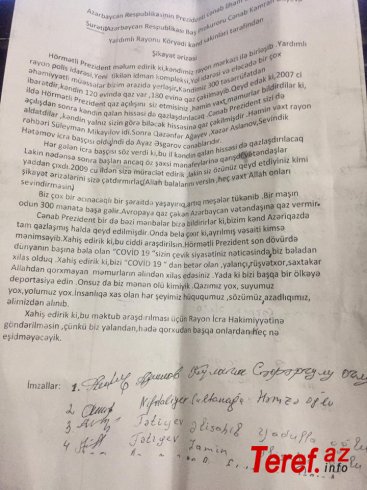 Azərbaycan Respublikasının Prezidenti cənab İlham
Surəti:Azərbaycan Respublikası Baş Prokuroru Cənab Kamran
Yardımlı Rayonu Köryədi kənd sakinləri tərəfindən
Şikayət ərizəsi
Hörmətli Prezident məlum edirik ki,kəndimiz rayon mərkəzi ilə birləşib .Yardımlı
rayon polis idarəsi,Yeni tikilən idman kompleksi,Yol idarəsi və elbəcidə bir çox
əhəmiyyətli müəssisələr bizim ərazidə yerləşir.Kəndimiz 300 təsərrüfatdan
ibarətdir,kəndin 120 evində qaz var ,180 evinə qaz çəkilməyib .Qeyd edək ki,2007 ci
ildə Hörmətli Prezident qaz açılışını siz etmisiniz ,həmin vaxt məmurlar bildirdilər ki,
açılışdan sonra kəndin qalan hissəsi də qazlaşdırılacaq
aldatdılar ,kəndin yalnız sizin görə biləcək hissəsinə qaz çəkilmişdir .Həmin vaxt rayon
rəhbəri Süleyman Mikayılov idi.Sonra Qəzənfər Ağayev ,Xəzər Aslanov,Sevindik
Hətəmov icra başçısı oldu,indi də Ayaz Əsgərov cənablarıdır.
Hər gələn icra başçısı söz verdi ki,bu il kəndin qalan hissəsi də qazlaşdırılacaq
Lakin nədənsə sonra başları ancaq öz şəxsi mənafelərinə qarışdı,vətəndaşlar
yaddan çıxdı.2009 cu ildən sizə müraciət edirik ,lakin siz özünüz qeyd ediyiniz kimi
şikayət ərizələrini sizə çatdırmırlar,(Allah balalarını versin ,heç vaxt Allah onları
sevindirməsin)
Biz çox bir acınacaqlı bir şəraitdə yaşayırıq,artıq meşələr tükənib .Bir maşın
odun 300 manata başa gəlir.Avropaya qaz çəkən Azərbaycan vətəndaşına qaz vermir.
Cənab Prezident bir də bəzi mənbələr bizə bildirirlər ki,bizim kənd Azəriqazda
tam qazlaşmış halda qeyd edilmişdir.Onda belə çıxır ki,ayrılmış vəsaiti kimsə
mənimsəyib.Xahiş edirik ki,bu ciddi araşdırılsın.Hörmətli Prezident son dövürdə
dünyanın başına bəla olan "COVİD 19 "sizin çevik siyasətiniz nəticəsində,biz bəladan
xilas olduq .Xahiş edirik ki, bizi "COVİD 19 " dan betər olan ,yalançı,rüşvətxor,saxtakar
Allahdan qorxmayan məmurların əlindən xilas edəsiniz .Yada ki bizi başqa bir ölkəyə
deportasiya edin .Onsuz da biz mənən ölü kimiyik .Qazımız yox, suyumuz
yox,yolumuz yox.İnsanlığa xas olan hər şeyimiz hüququmuz ,sözümüz,azadlığımız,
əlimizdən alınıb.
Xahiş edirik ki,bu məktub araşdırılması üçün Rayon İcra Hakimiyyətinə
göndərilməsin ,çünkü biz yalandan,hədə qorxudan başqa onlardan heç nə
eşidməyəcəyik.
İmzallar: 1.
2
3
4
Teref.az
.info